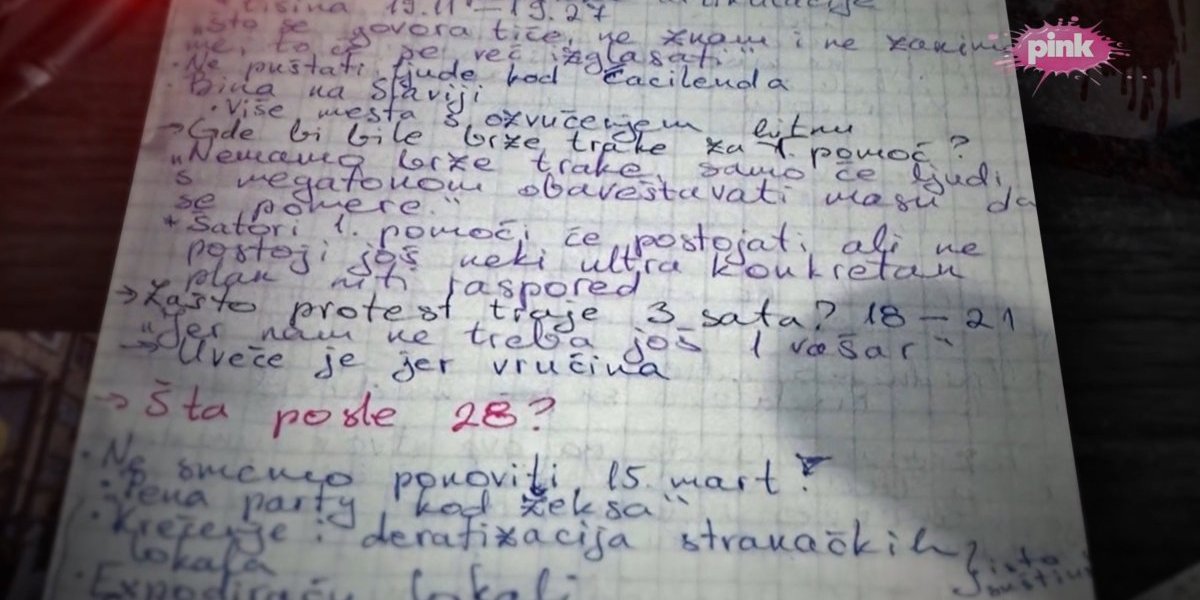 tišina 19.11 – 19.27
„što se govora tiče, ne znam i ne zanima
me, to će se već izglasati"
• Ne puštati ljude kod Ćacilenda
• Bina na Slaviji
• Više mesta s ozvučenjem bitnu
→ Gde bi bile brze trake za 1. pomoć?
„Nemamo brze trake, samo će ljudi
s megafonom obaveštavati masu da
se pomere."
* Šatori 1. pomoći će postojati, ali ne
postoji još neki ultra konkretan
plan niti raspored
→ Zašto protest traje 3 sata? 18 – 21
„Jer nam ne treba još 1 vašar"
→ Uveče je jer vrućina
→ Šta posle 28?
• Ne smemo ponoviti 15. mart!
• „Pena party kod Žeksa"
• Krečenje i deratizacija stranačkih
lokala
isto
• lokali
pink